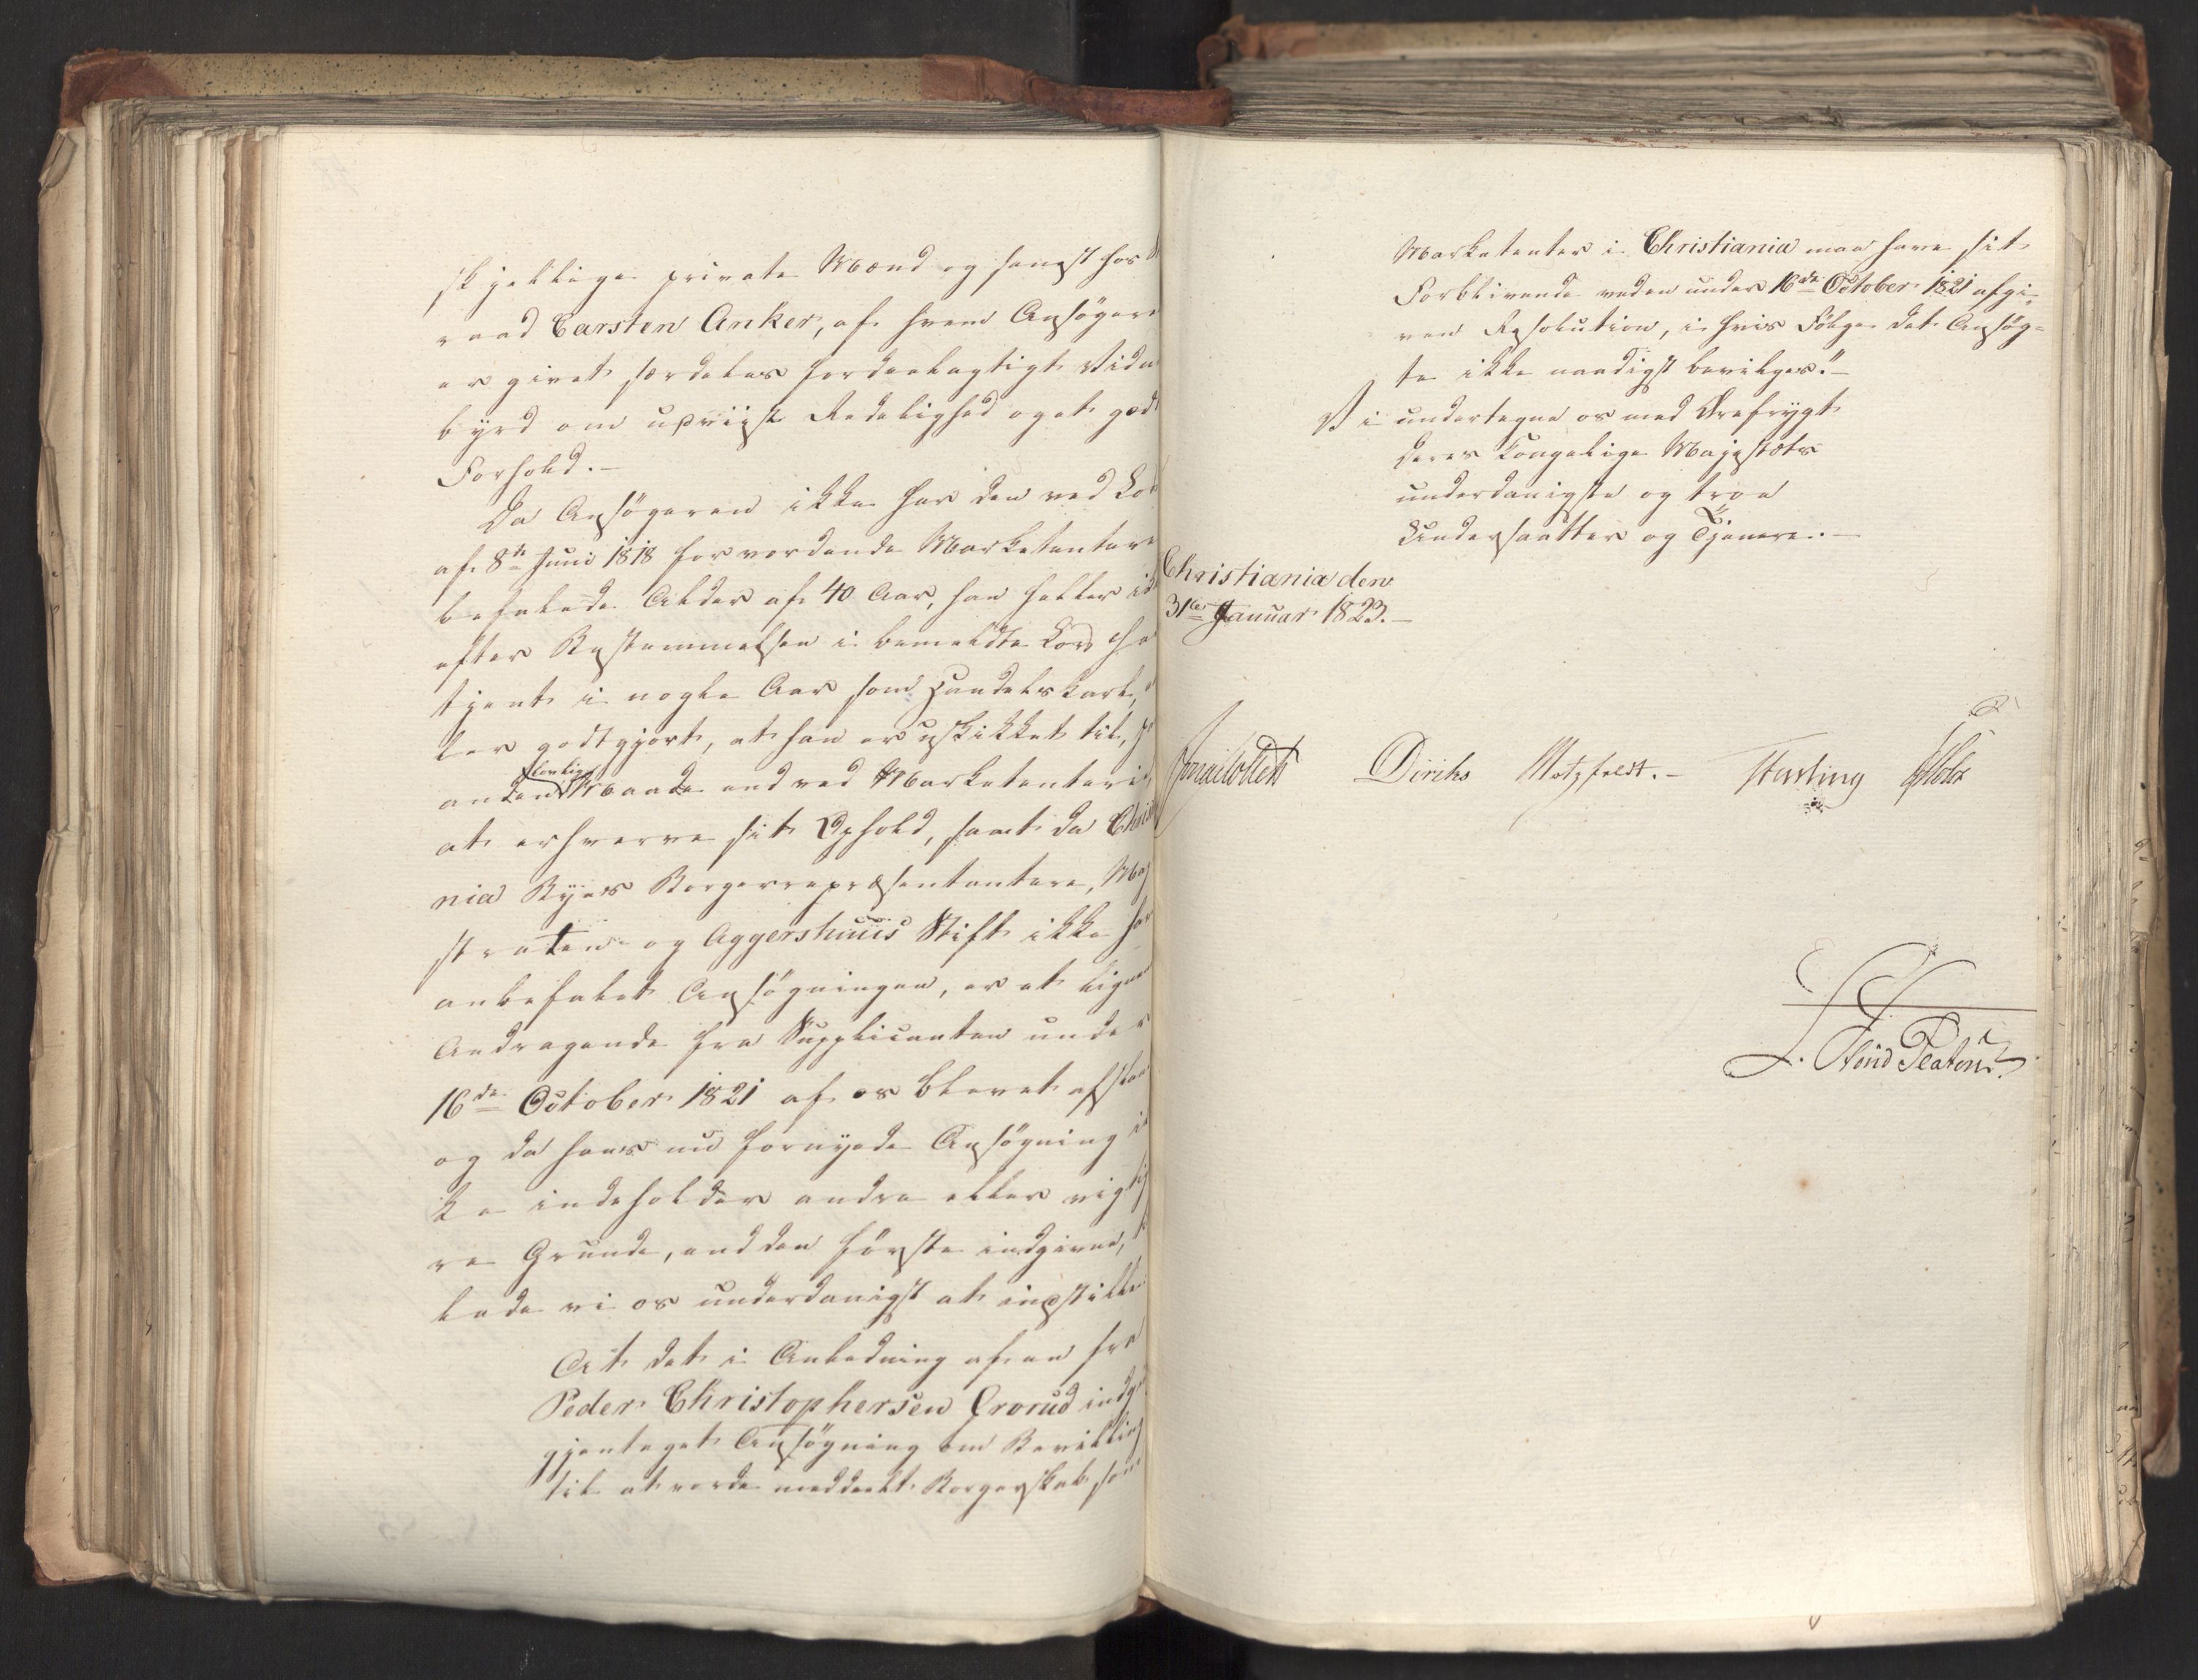 skjellige private Mænd og senest hos
raad Carsten Anker, af hvem Ansögere
er givet særdeles fordeelagtigt Vidn
byrd om udviist Redelighed og et godt
Forhold.-
Da Ansögeren ikke har den ved Lov
af 8de Juni 1818 for vordende Marketentere
befalede Alder af 40 Aar, han heller ik
efter Bestemmelsen i bemeldte Lov ha
tjent i nogle Aar som Handelskarl,
ler godtgjort, at han er uskikket til, p
anden lovlig Maade end ved Marketenteri,
at erhverve sit Ophold, samt da Christi
nia Byes Borgerrepræsentantere, Magi
straten og Aggershuus Stift ikke har
anbefalet Ansögningen, er et lignen
Andragende fra Supplicanten under
16de October 1821 af os blevet afslaa
og da hans nu fornyede Ansögning ik
ke indeholder andre eller vigtig
re Grunde, end den förste indgivne,
lade vi os underdanigst at indstille
At det i Anledning af en fra
Peder Christophersen Grorud indg
gjentaget Ansögning om Bevilling
til at vorde meddeelt Borgerskab som
Marketenter i Christiania maa have sit
Forblivende ved en under 16de October 1821 afgi-
ven Resolution, i hvis Fölge det Ansög-
te ikke naadigst bevilges."-
Vi undertegne os med Ærefrygt
Deres Kongelige Majestæts
underdanigste og troe
Undersaatter og Tjenere.-
Christiania den
31te Januar 1823.-
Jonas Collett Diriks Motzfeldt.- Fasting Holst
L. Stoud Platou